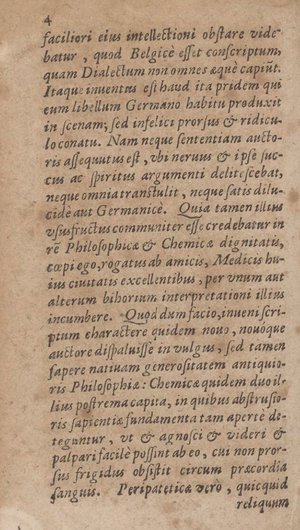 4
faciliori eius intellectioni obstare vide-
batur, quod Belgicè esset conscriptum,
quam Dialectum non omnes æquè capiũt.
Itaque inuentus est haud ita pridem qui
eum libellum Germano habitu produxit
in scenam; sed infelici prorsus & ridicu-
lo conatu. Nam neque sententiam aucto-
ris assequutus est, vbi neruus & ipse suc-
cus ac spiritus argumenti delitescebat,
neque omnia transtulit, neque satis dilu-
cidè aut Germanicè. Quia tamen illius
vsusfructus communiter esse credebatur in
rẽ Philosophicæ & Chemicæ dignitatis,
cœpi ego, rogatus ab amicis, Medicis hu-
ius ciuitatis excellentibus, per vnum aut
alterum bihorium interpretationi illius
incumbere. Quod dum facio, inueni scri-
ptum charactere quidem nouo, nouóque
auctore dispaluisse in vulgus, sed tamen
sapere natiuam generositatem antiquio-
ris Philosophiæ: Chemicæ quidem duo il-
lius postrema capita, in quibus abstrusio-
ris sapientiæ fundamenta tam apertè de-
teguntur, vt & agnosci & videri &
palpari facilè possint ab eo, cui non pror-
sus frigidus obsistit circum præcordia
sanguis. Peripateticæ vero, quicquid
reliquum